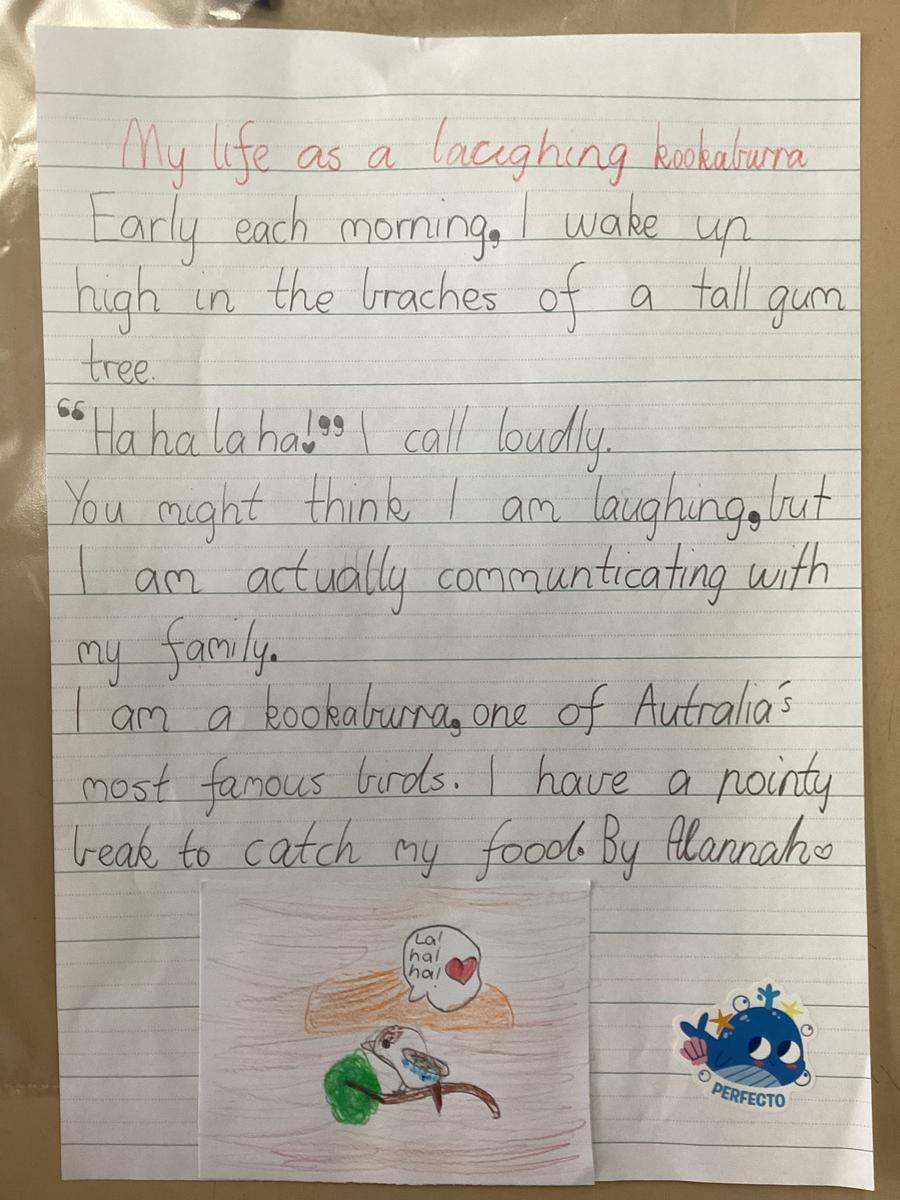 My life as a laughing kookaburra
Early each morning, I wake up
high in the braches of a tall gum
tree.
“Ha ha la ha!” I call loudly.
You might think I am laughing, but
I am actually communticating with
my family.
I am a kookaburra, one of Autralia's
most famous birds. I have a pointy
beak to catch my food. By Alannah
La!
ha!
ha!
PERFECTO